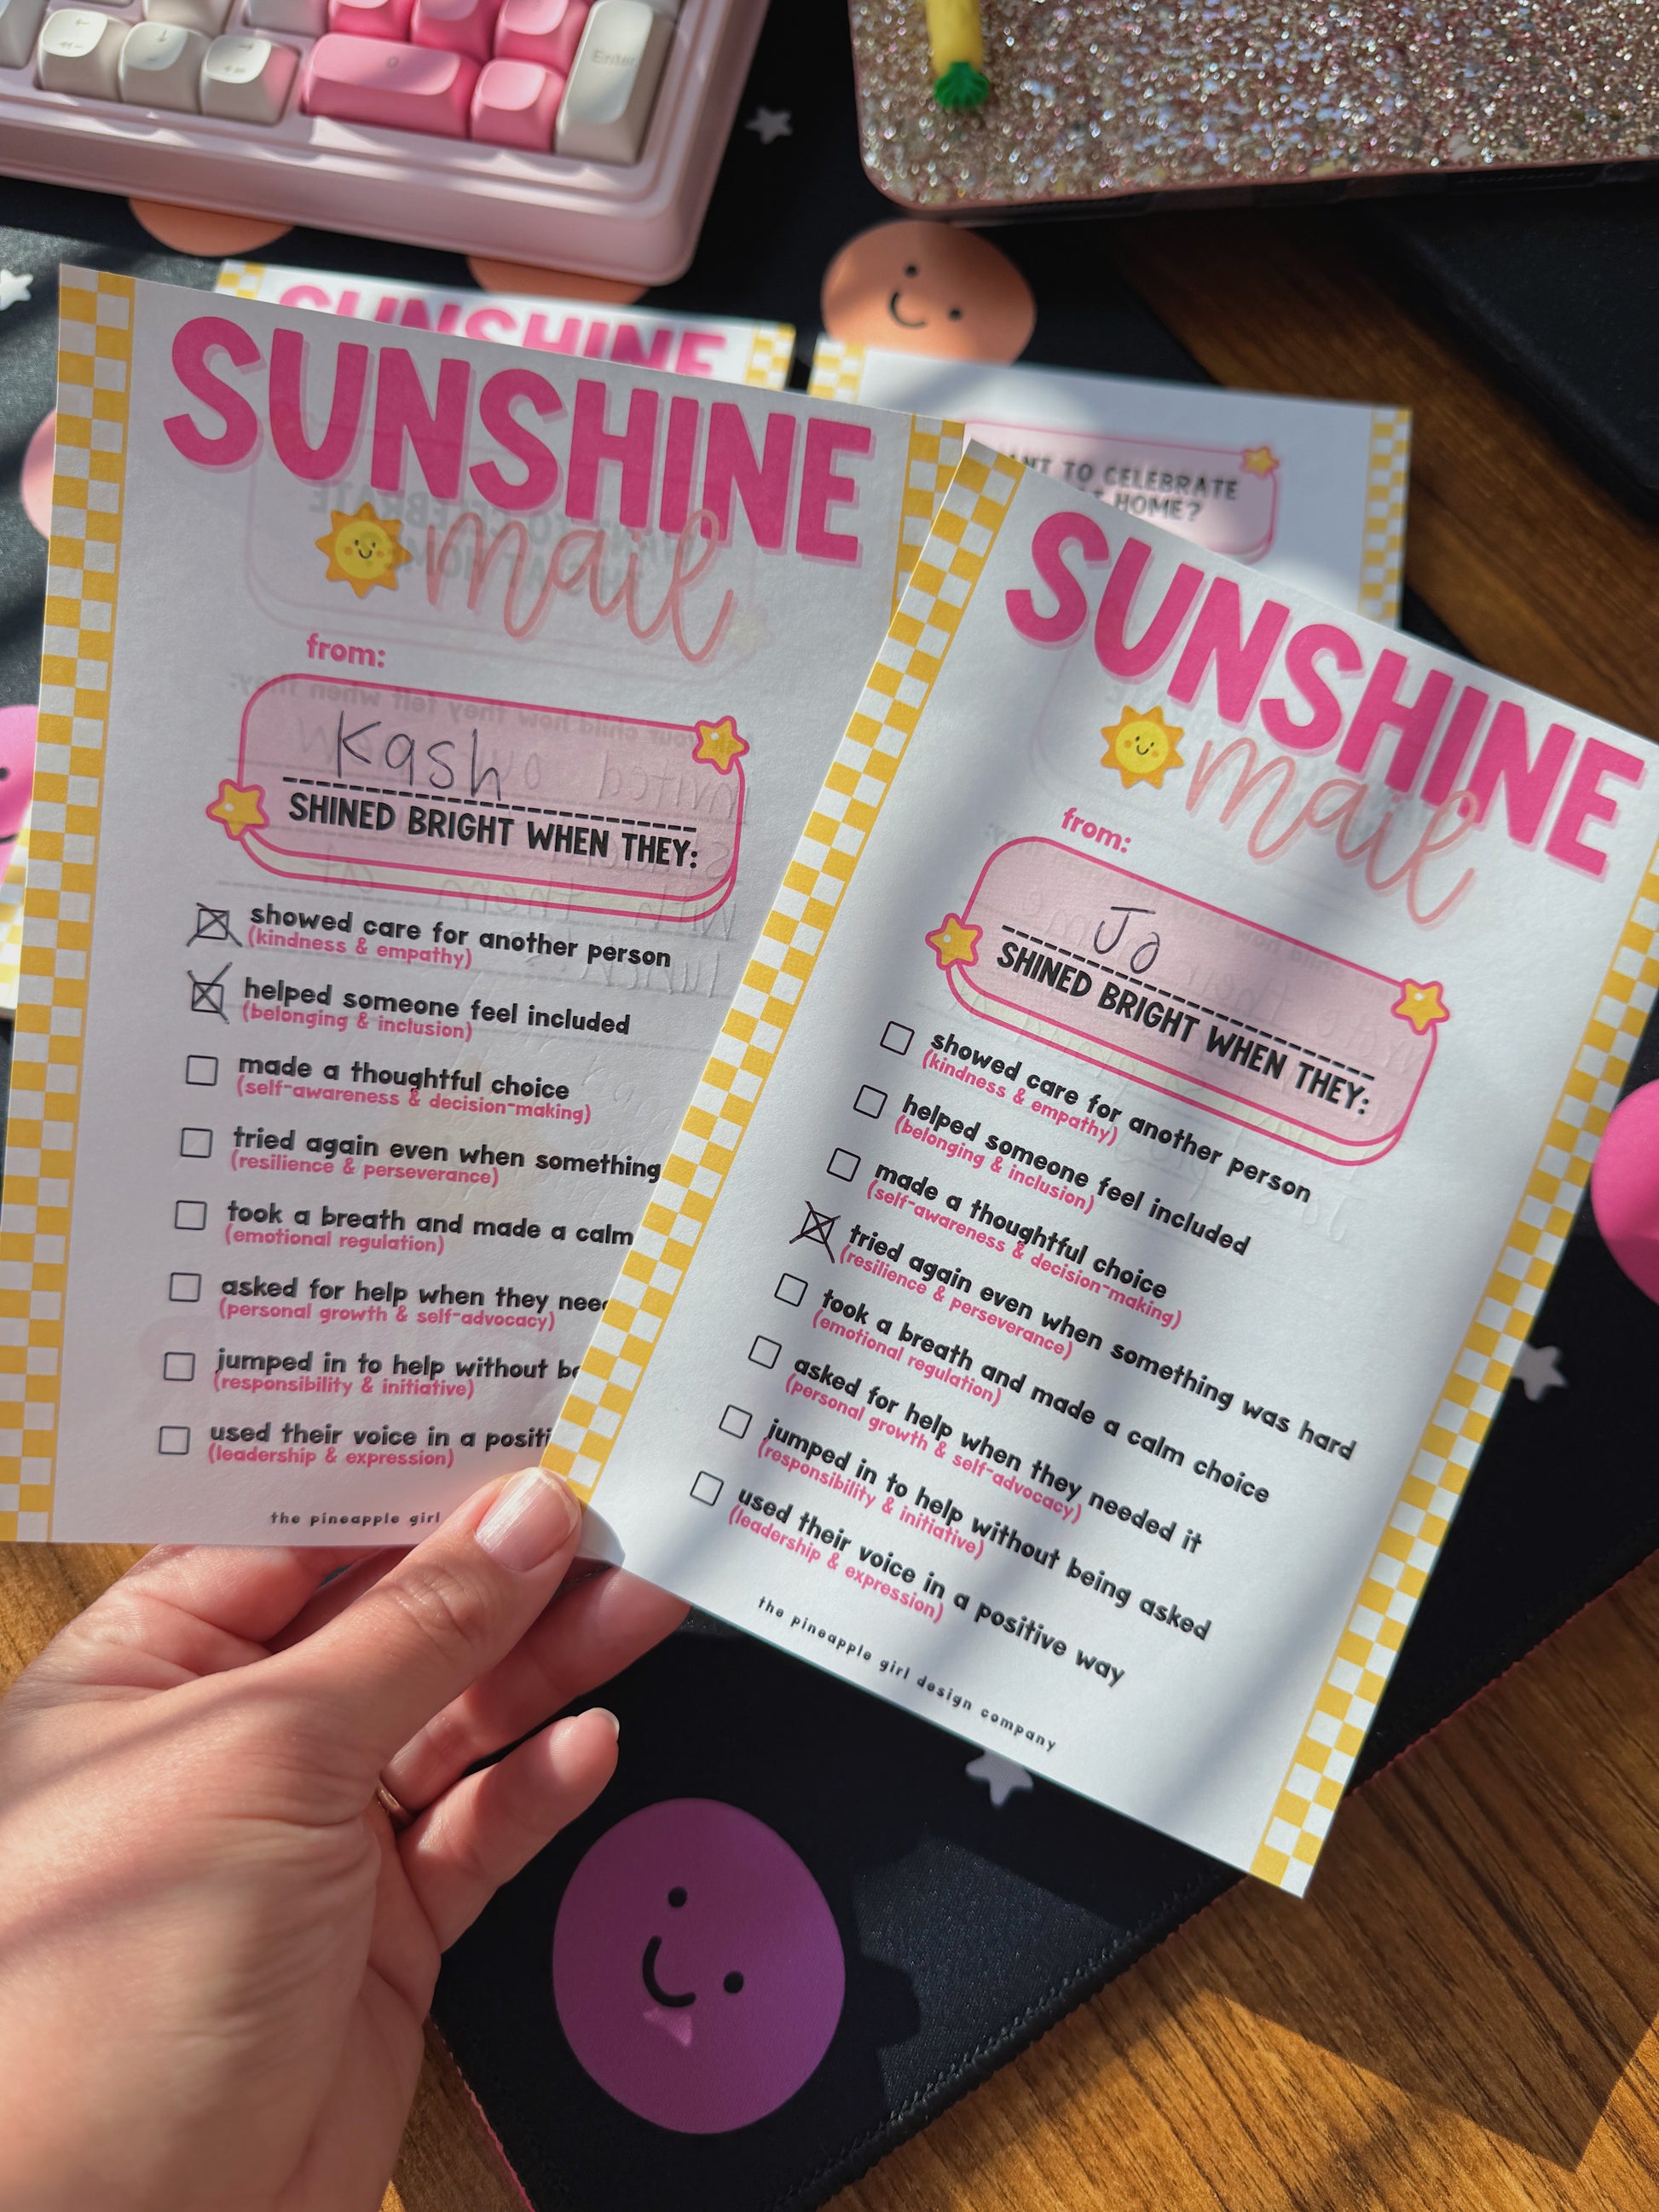 Enter
SUNSHINE
WANT TO CELEBRATE
AT HOME?
SUNSHINE
mail
from:
Kash
SHINED BRIGHT WHEN THEY:
showed care for another person
(kindness & empathy)
helped someone feel included
(belonging & inclusion)
made a thoughtful choice
(self-awareness & decision-making)
tried again even when something
(resilience & perseverance)
took a breath and made a calm
(emotional regulation)
asked for help when they need
(personal growth & self-advocacy)
jumped in to help without
(responsibility & initiative)
used their voice in a positi
(leadership & expression)
the pineapple girl
SUNSHINE
mail
from:
Jo
SHINED BRIGHT WHEN THEY:
showed care for another person
(kindness & empathy)
helped someone feel included
(belonging & inclusion)
made a thoughtful choice
(self-awareness & decision-making)
tried again even when something was hard
(resilience & perseverance)
took a breath and made a calm choice
(emotional regulation)
asked for help when they needed it
(personal growth & self-advocacy)
jumped in to help without being asked
(responsibility & initiative)
used their voice in a positive way
(leadership & expression)
the pineapple girl design company